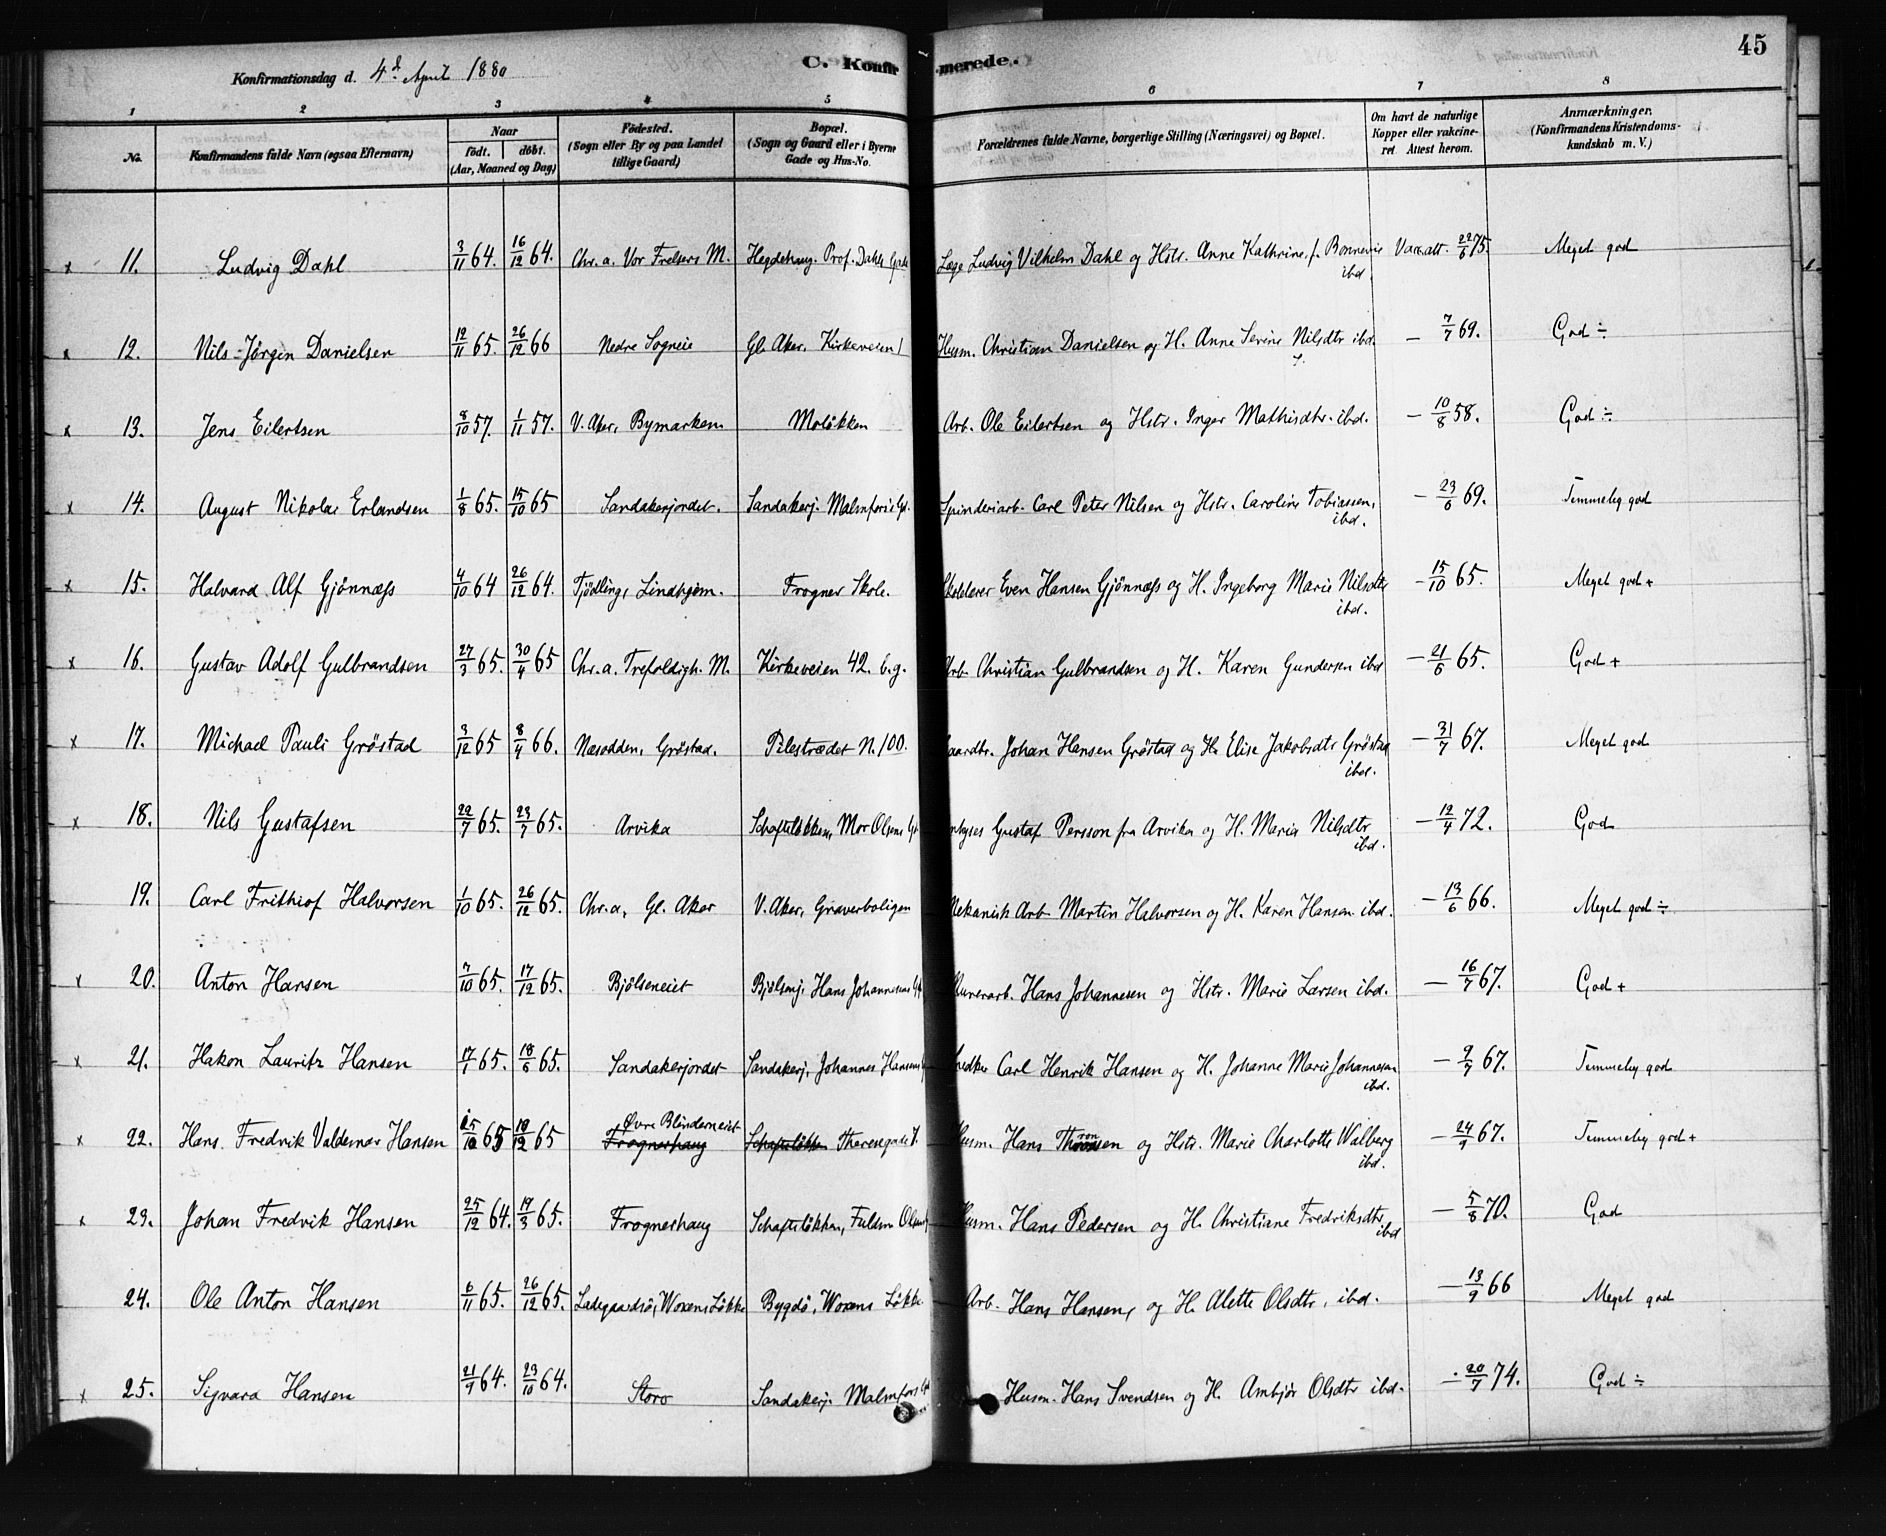 45
Konfirmationsdag d. 4d April 1880
C. Konfirmerede.
1 2 3 4 5 6 7 8
No. Konfirmandens fulde Navn (ogsaa Efternavn) Naar født. døbt. (Aar, Maaned og Dag) Fødested. (Sogn eller By og paa Landet tillige Gaard) Bopæl. (Sogn og Gaard eller i Byerne Gade og Hus-No. Forældrenes fulde Navne, borgerlige Stilling (Næringsvei) og Bopæl. Om havt de naturlige Kopper eller vakcineret Attest herom. Anmærkninger. (Konfirmandens Kristendomskundskab m. V.)
x 11. Ludvig Dahl 3/11 64. 16/12 64. Chr.a. Vor Frelsers M. Hegdehaug. Prof. Dahls Gade Læge Ludvig Vilhelm Dahl og Hstr. Anne Kathrine, f. Bonnevie ibd. Vacc.att. 22/6 75. Meget god
x 12. Nils Jörgen Danielsen 12/11 65. 26/12 66 Nedre Sogneie Gl. Aker, Kirkeveien 1 Husm. Christian Danielsen og H. Anne Serine Nilsdtr ibd. — 7/7 69. God ÷
x 13. Jens Eilertsen 8/10 57. 1/11 57. V. Aker, Bymarken Moløkken Arb. Ole Eilertsen og Hstr. Inger Mathisdtr. ibd. — 10/8 58. God ÷
x 14. August Nikolai Erlandsen 1/8 65. 15/10 65 Sandakerjordet. Sandakerj. Malmfors's Gd. Spinderiarb. Carl Peter Nilsen og Hstr. Caroline Tobiassen, ibd. — 23/6 69. Temmelig god
x 15. Halvard Alf Gjönnæss 4/10 64 26/12 64. Tjödling, Lindhjem. Frogner Skole. Skolelærer Even Hansen Gjönnæss og H. Ingeborg Marie Nilsdtr ibd. — 15/10 65. Meget god +
x 16. Gustav Adolf Gulbrandsen 27/3 65. 30/4 65 Chr.a. Trefoldigh. M. Kirkeveien 42. b.g. Arb. Christian Gulbrandsen og H. Karen Gundersen ibd — 21/6 65. God +
x 17. Michael Pauli Gröstad 3/12 65 8/4 66. Næsodden, Gröstad. Pilestrædet N. 100. Gaardbr. Johan Hansen Gröstad og H. Elise Jakobsdtr Gröstad ibd. — 31/7 67. Meget god
x 18. Nils Gustafsen 22/7 65. 23/7 65. Arvika Schafteløkken, Mor Olsens Gd. Gustaf Persson fra Arvika og H. Maria Nilsdtr ibd. — 12/4 72. God
19. Carl Frithiof Halvorsen 1/10 65. 26/12 65. Chr.a, Gl. Aker V. Aker, Graverboligen Mekanisk Arb. Martin Halvorsen og H. Karen Hansen. ibd. — 13/6 66. Meget god ÷
x 20. Anton Hansen 7/10 65. 17/12 65. Bjølseneiet Bjølsenj. Hans Johannesens Gd. Murerarb. Hans Johannesen og Hstr. Marie Larsen ibd. — 16/7 67. God +
x 21. Hakon Lauritz Hansen 17/1 65. 18/6 65. Sandakerjordet Sandakerj, Johannes Hansens Snedker Carl Henrik Hansen og H. Johanne Marie Johannesen ibd. — 9/7 67. Temmelig god
x 22. Hans Fredrik Valdemar Hansen 25/10 65 10/12 65 Frognerhaug Øvre Blinderneiet Schafteløkken Theresegade 7. Husm. Hans Thorsen og Hstr. Marie Charlotte Walberg ibd. — 24/9 67. Temmelig god +
x 23. Johan Fredrik Hansen 25/12 64. 19/3 65. Frognerhaug Schafteløkken, Fuldm Olsens Husm. Hans Pedersen og H. Christiane Fredriksdtr ibd — 5/8 70. God
24. Ole Anton Hansen 6/11 65. 26/12 65. Ladegaardsö, Woxens Løkke Bygdö, Woxens Løkke. Arb. Hans Hansen, og H. Alette Olsdtr, ibd. — 13/9 66 Meget god
x 25. Sigvard Hansen 21/9 64. 23/10 64. Storo Sandakerj. Malmfors Gd. Husm. Hans Svendsen og H. Ambjör Olsdtr ibd. — 20/7 74. God ÷